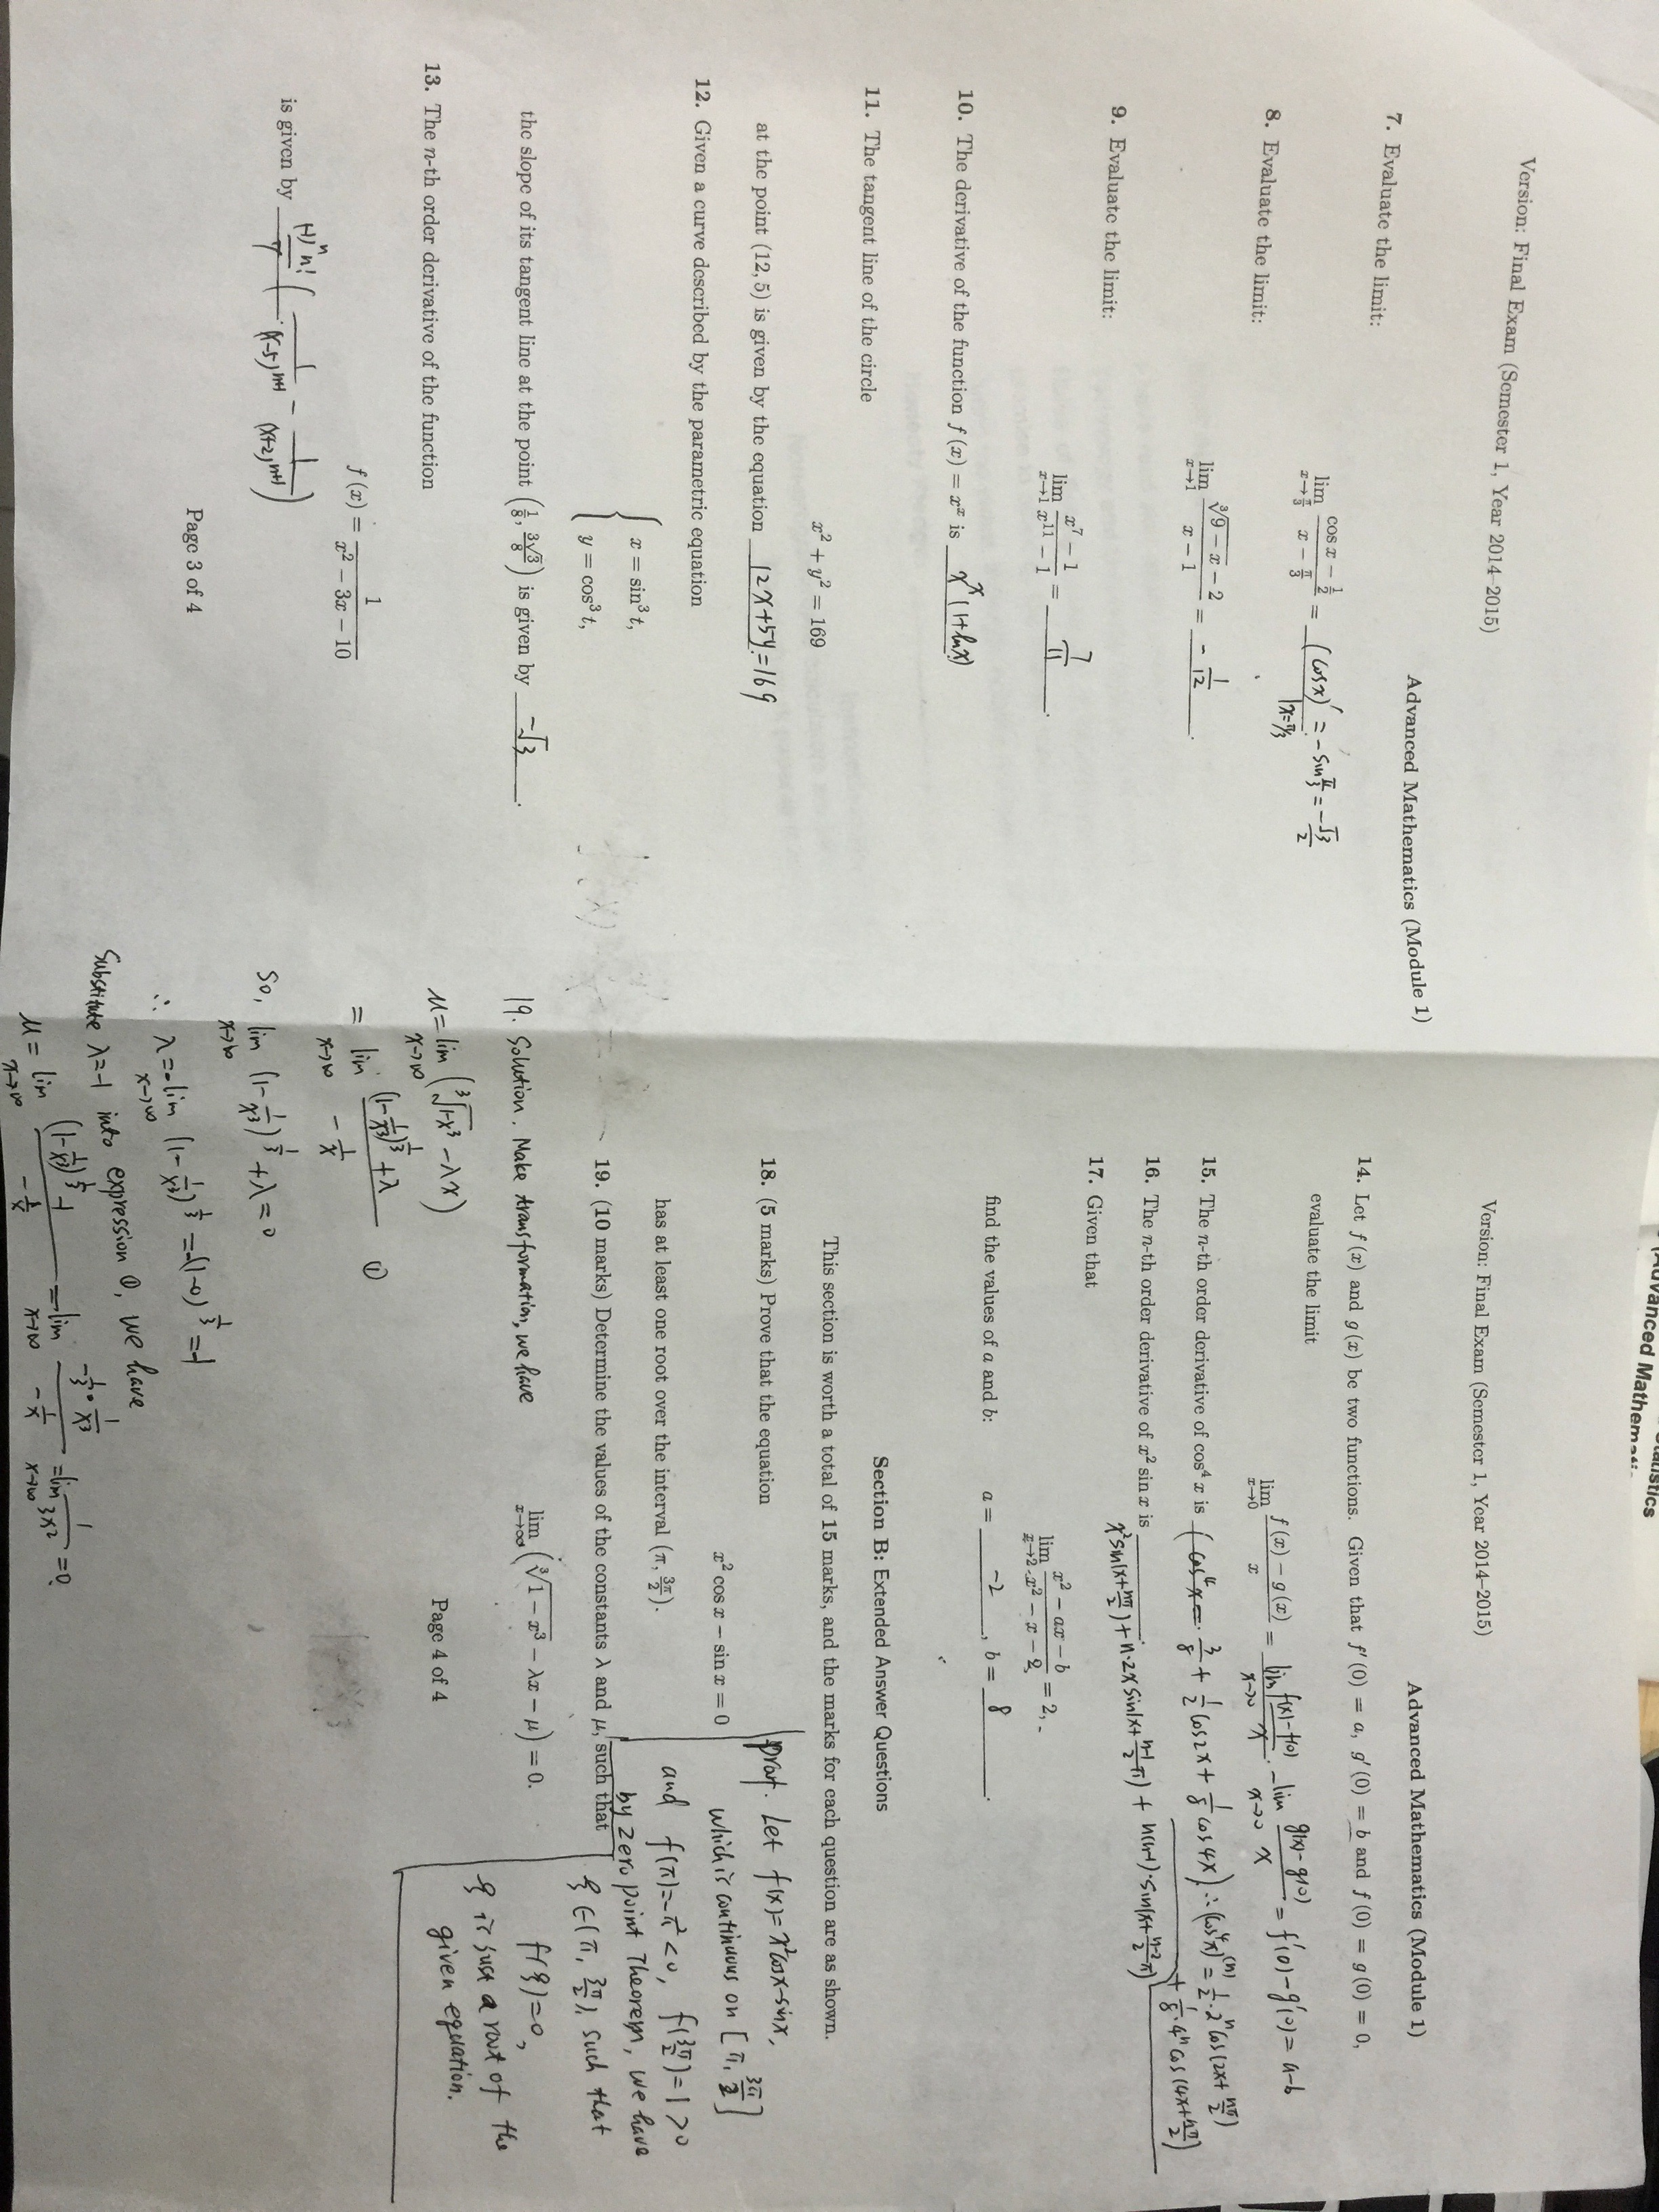 Version: Final Exam (Semester 1, Year 2014–2015)
Advanced Mathematics (Module 1)
7. Evaluate the limit:
lim x→π/3 (cos x − 1/2)/(x − π/3) = (cos x)′ |x=π/3 = −sin π/3 = −√3/2
8. Evaluate the limit:
lim x→1 (∛(9 − x) − 2)/(x − 1) = −1/12.
9. Evaluate the limit:
lim x→1 (x⁷ − 1)/(x¹¹ − 1) = 7/11.
10. The derivative of the function f (x) = xˣ is xˣ(1+lnx)
11. The tangent line of the circle
x² + y² = 169
at the point (12, 5) is given by the equation 12x+5y=169
12. Given a curve described by the parametric equation
{ x = sin³ t,
y = cos³ t,
the slope of its tangent line at the point (1/8, 3√3/8) is given by −√3.
13. The n-th order derivative of the function
f (x) = 1/(x² − 3x − 10)
is given by (-1)ⁿ n!/7 (1/(x-5)ⁿ⁺¹ − 1/(x+2)ⁿ⁺¹)
Page 3 of 4
Advanced Mathemati
Version: Final Exam (Semester 1, Year 2014–2015)
Advanced Mathematics (Module 1)
14. Let f (x) and g (x) be two functions. Given that f′ (0) = a, g′ (0) = b and f (0) = g (0) = 0,
evaluate the limit
lim x→0 (f (x) − g (x))/x = lim x→0 (f(x)−f(0))/x − lim x→0 (g(x)−g(0))/x = f′(0)−g′(0) = a−b
15. The n-th order derivative of cos⁴ x is (cos⁴x = 3/8 + 1/2 cos2x + 1/8 cos4x) ∴ (cos⁴x)⁽ⁿ⁾ = 1/2·2ⁿ cos(2x+ nπ/2)
+ 1/8·4ⁿ cos(4x+ nπ/2)
16. The n-th order derivative of x² sin x is
x² sin(x+ nπ/2) + n·2x sin(x+ (n-1)/2 π) + n(n-1)·sin(x+ (n-2)/2 π)
17. Given that
lim x→2 (x² − ax − b)/(x² − x − 2) = 2,
find the values of a and b: a = −2, b = 8.
Section B: Extended Answer Questions
This section is worth a total of 15 marks, and the marks for each question are as shown.
18. (5 marks) Prove that the equation
x² cos x − sin x = 0
has at least one root over the interval (π, 3π/2).
prof. Let f(x)=x²cosx−sinx,
which is continuous on [π, 3π/2]
and f(π)=−π²<0, f(3π/2)=1>0
by zero point Theorem, we have
ξ∈(π, 3π/2), such that
f(ξ)=0,
ξ is just a root of the
given equation.
19. (10 marks) Determine the values of the constants λ and μ, such that
lim x→∞ (∛(1 − x³) − λx − μ) = 0.
Page 4 of 4
19. Solution. Make transformation, we have
μ = lim x→∞ (∛(1-x³) − λx)
= lim x→∞ ((1−1/x³)^(1/3) + λ)/(−1/x) ①
So, lim x→∞ (1−1/x³)^(1/3) + λ = 0
∴ λ = −lim x→∞ (1−1/x³)^(1/3) = −(1−0)^(1/3) = −1
Substitute λ=−1 into expression ①, we have
μ = lim x→∞ ((1−1/x³)^(1/3) − 1)/(−1/x) = lim x→∞ (−1/3 · 1/x³)/(−1/x) = lim x→∞ 1/3x² = 0.